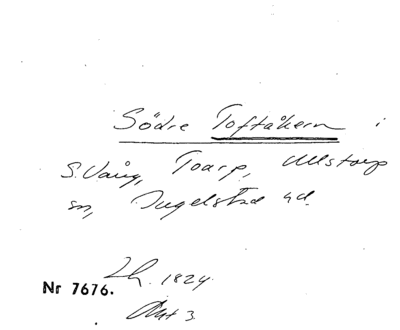 Södre Toftåkern i
S. Vång, Toarp, Ullstorp
sn, Ingelstad hd.
Lh. 1824
Nr 7676.
Akt 3.